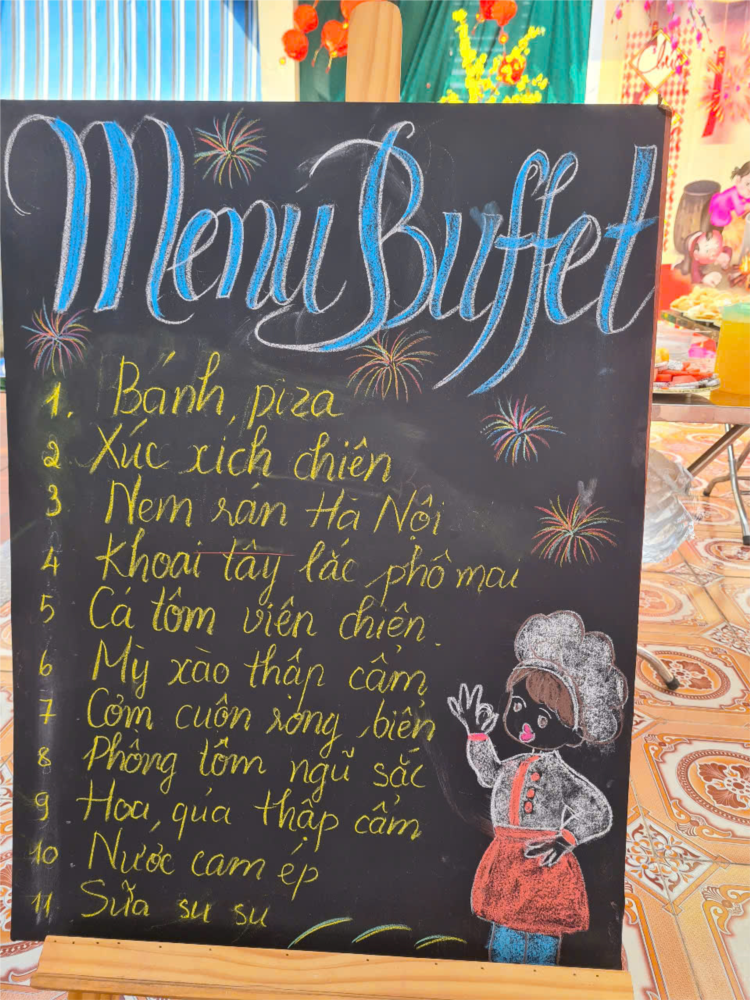 Menu Buffet
1. Bánh, piza
2 Xúc xích chiên
3 Nem rán Hà Nội
4 Khoai tây lắc phô mai
5 Cá tôm viên chiên.
6 Mỳ xào thập cẩm
7 Cơm cuộn rong biển
8 Phồng tôm ngũ sắc
9 Hoa, quả thập cẩm
10 Nước cam ép
11 Sữa su su